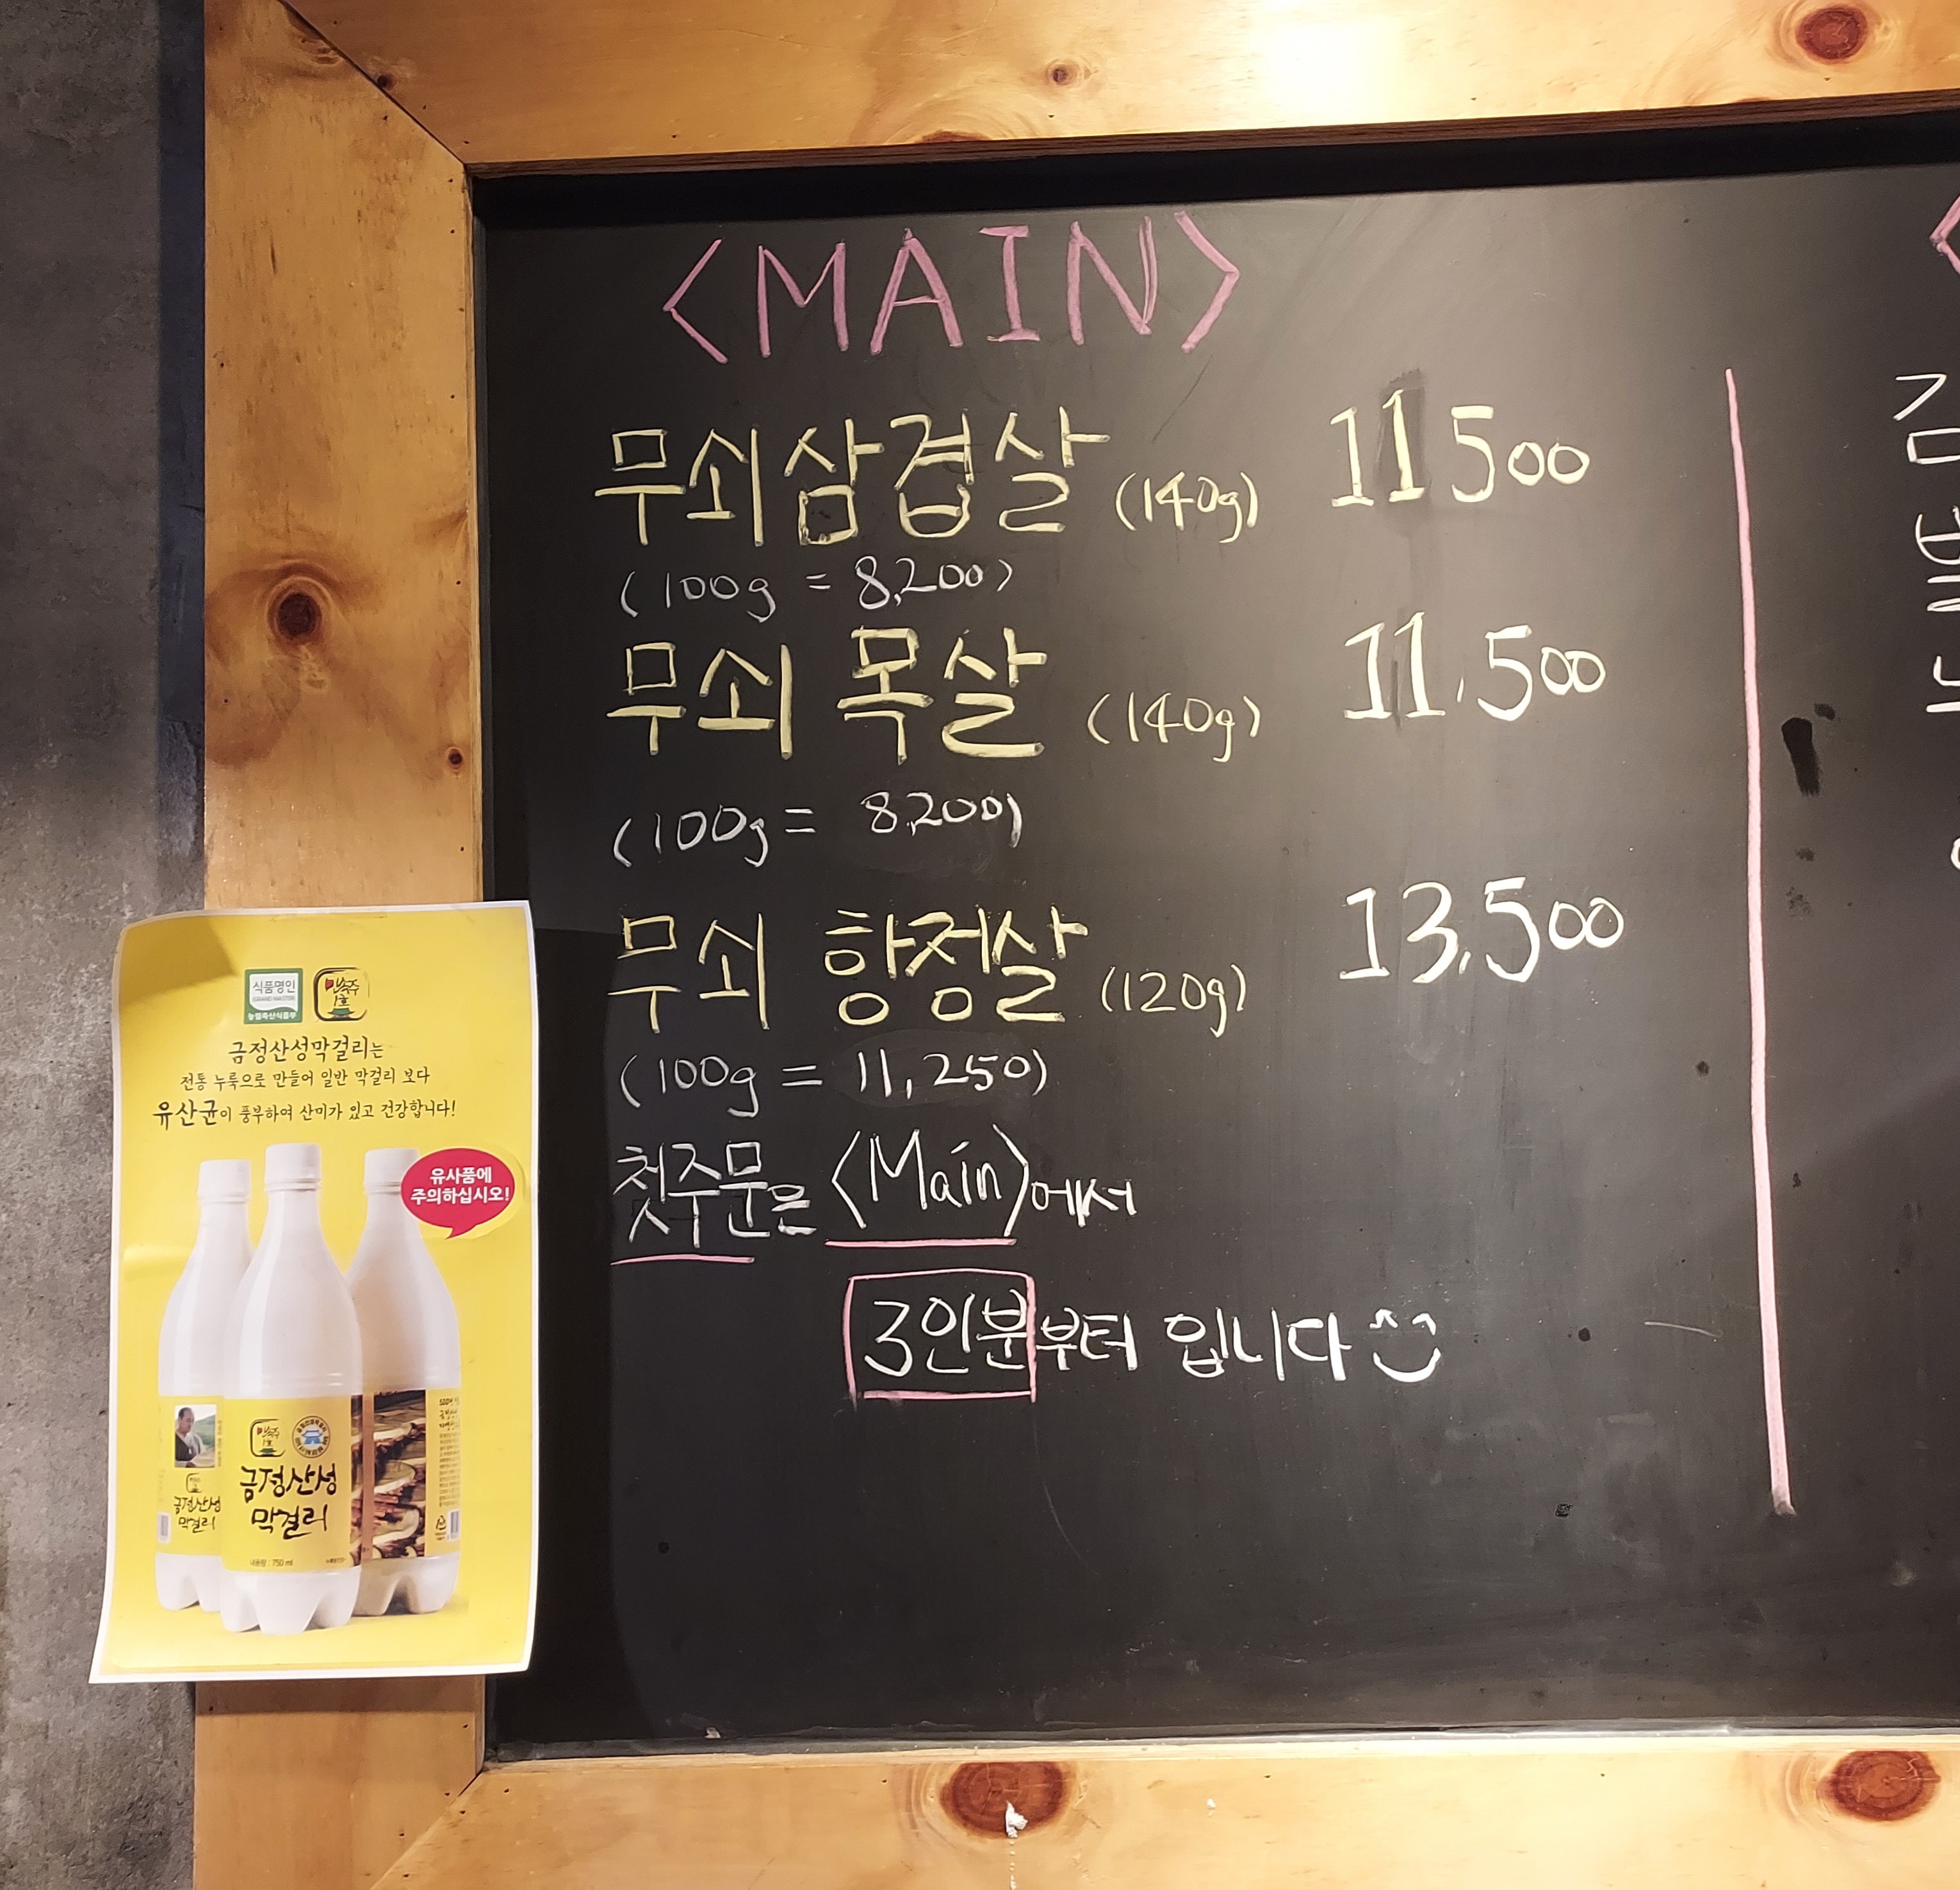 <MAIN>
무쇠삼겹살 (140g) 11500
(100g = 8,200)
무쇠 목살 (140g) 11,500
(100g = 8,200)
무쇠 항정살 (120g) 13,500
(100g = 11,250)
첫주문은 <Main>에서
3인분부터 입니다
식품명인
GRAND MASTER
농림축산식품부
민속주
1호
금정산성막걸리는
전통 누룩으로 만들어 일반 막걸리 보다
유산균이 풍부하여 산미가 있고 건강합니다!
유사품에
주의하십시오!
민속주
1호
금정산성
막걸리
내용량 : 750 ml
금정산성
막걸리